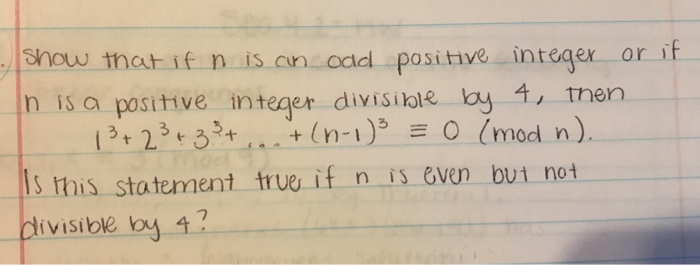 Show that if n is an odd positive integer or if
n is a positive integer divisible by 4, then
1³+ 2³+ 3³+ ... + (n-1)³ ≡ 0 (mod n).
Is this statement true if n is even but not
divisible by 4?